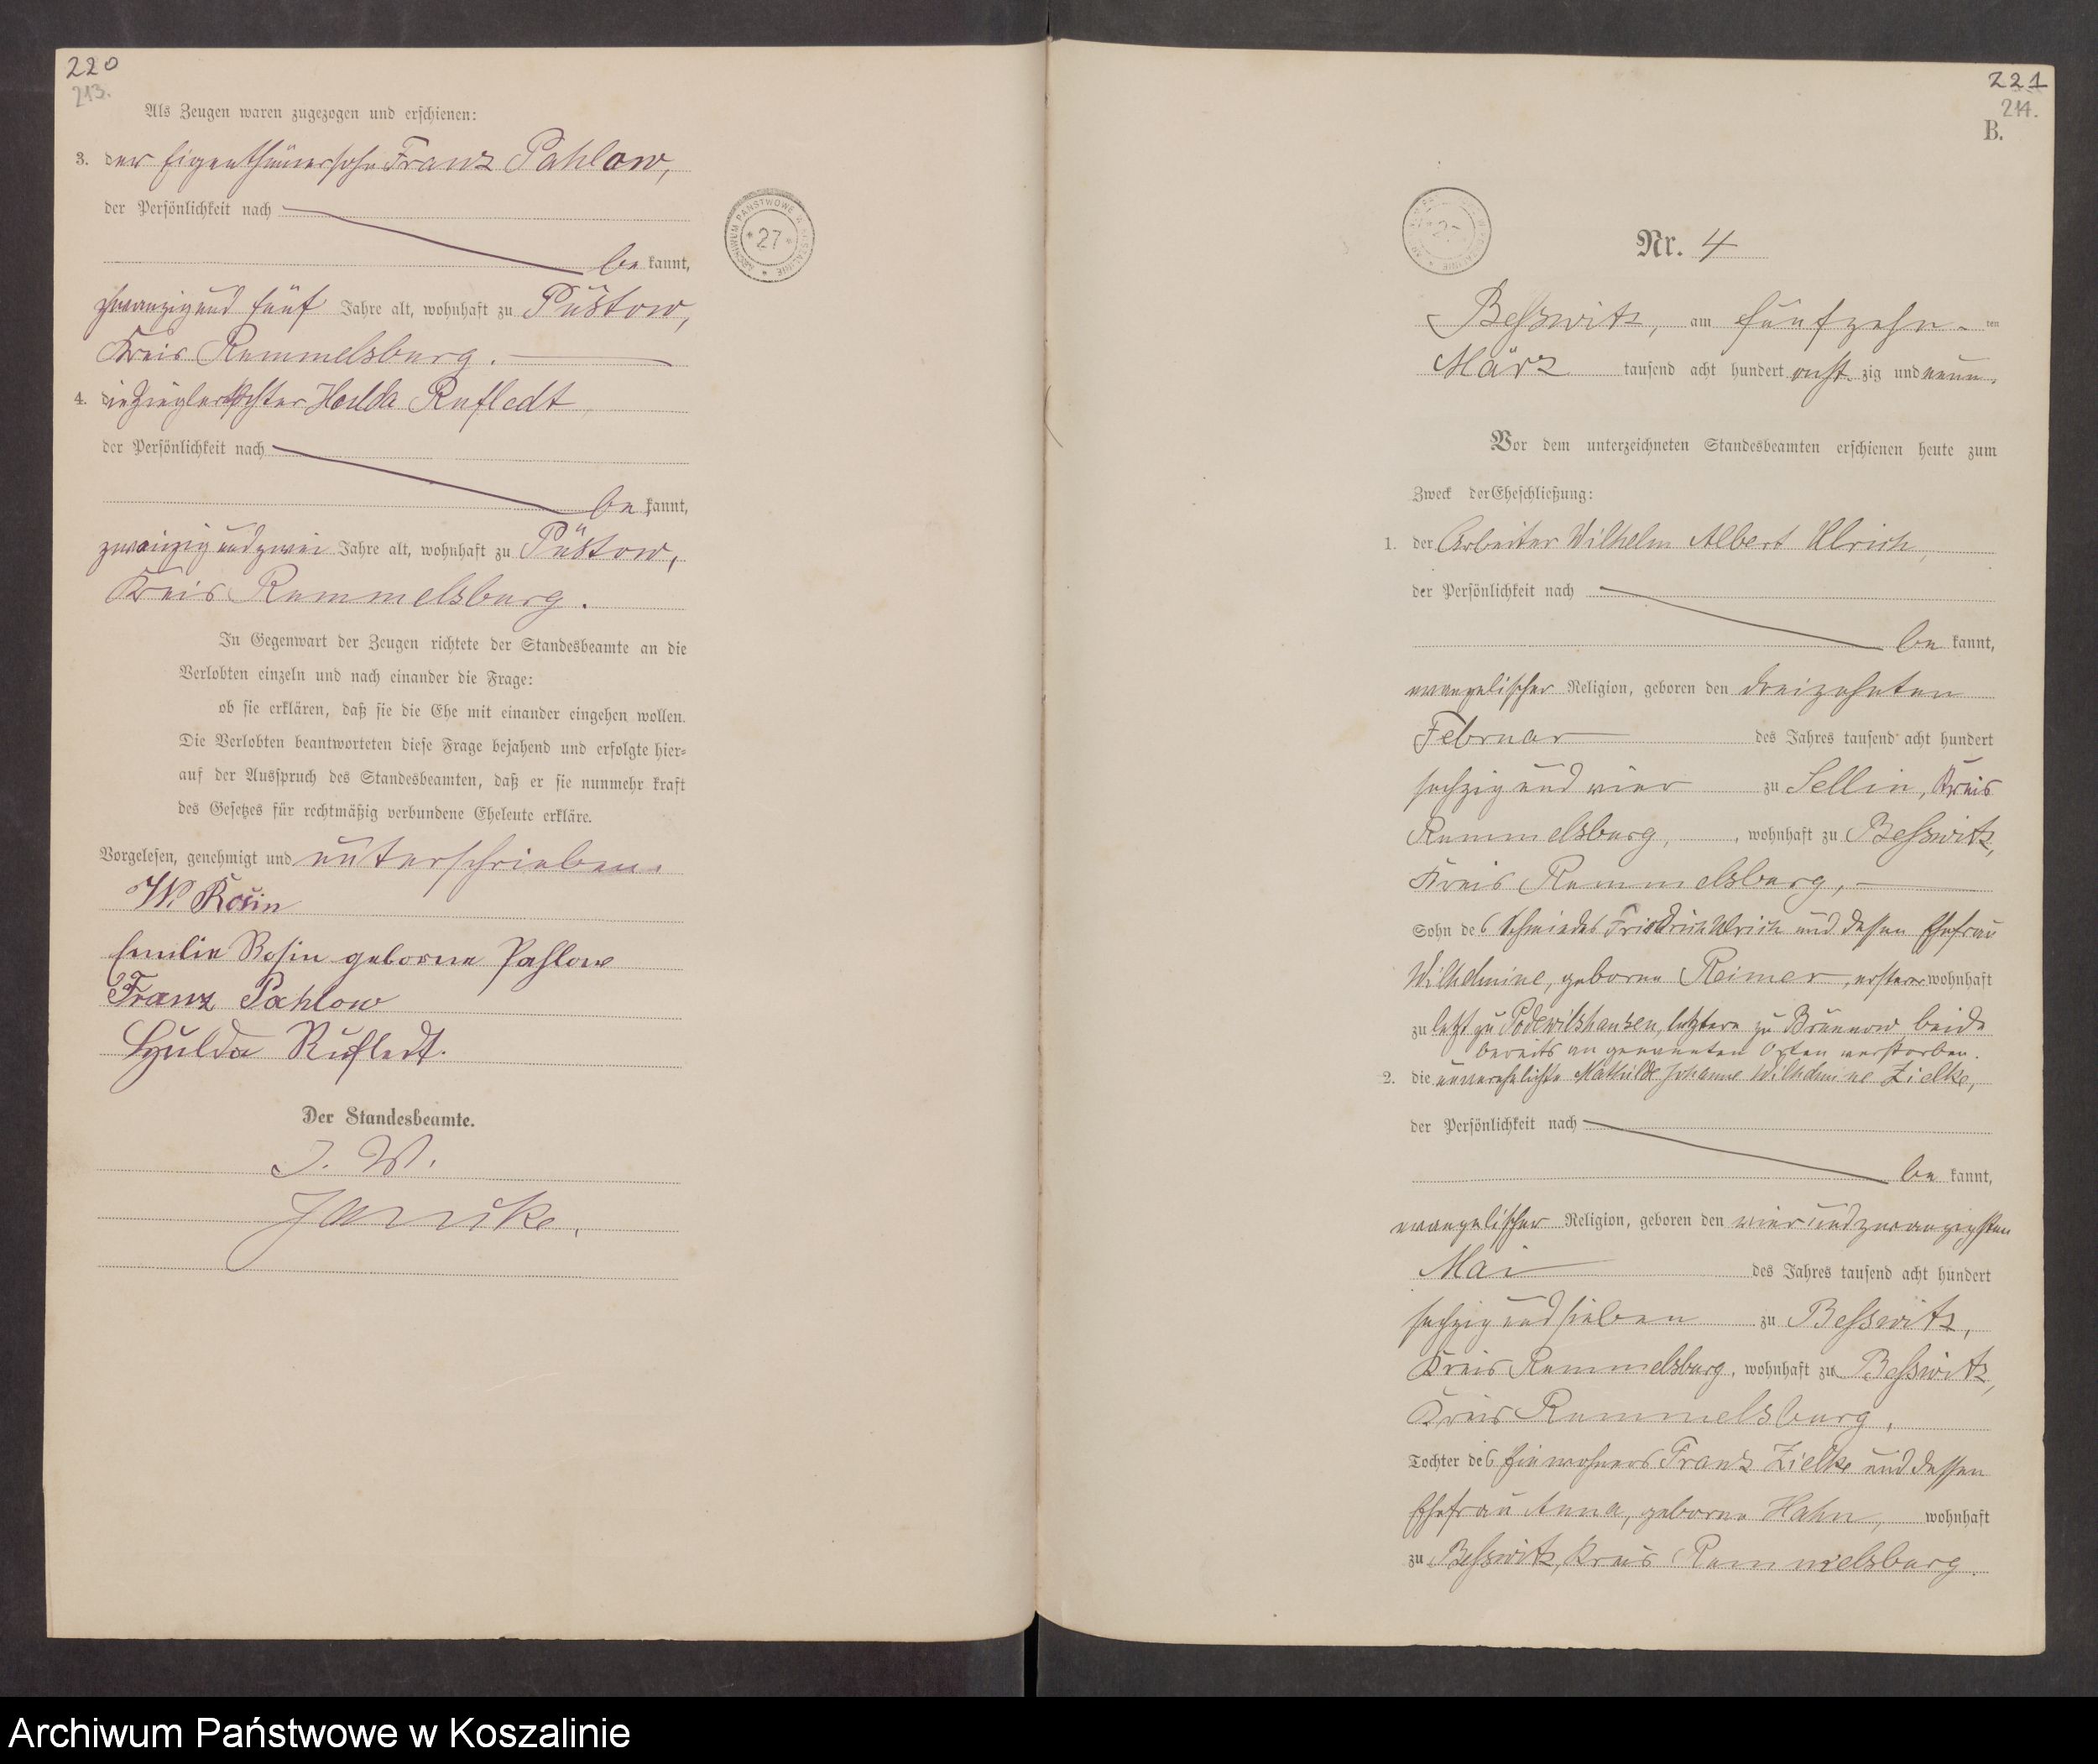 220
213.
Als Zeugen waren zugezogen und erschienen:
3. der Eigenthümersohn Franz Pahlow,
der Persönlichkeit nach
be kannt,
zwanzig und fünf Jahre alt, wohnhaft zu Püstow,
Kreis Rummelsburg.
4. die Zieglertochter Hulda Rufledt
der Persönlichkeit nach
be kannt,
zwanzig und zwei Jahre alt, wohnhaft zu Püstow,
Kreis Rummelsburg.
In Gegenwart der Zeugen richtete der Standesbeamte an die
Verlobten einzeln und nach einander die Frage:
ob sie erklären, daß sie die Ehe mit einander eingehen wollen.
Die Verlobten beantworteten diese Frage bejahend und erfolgte hier-
auf der Ausspruch des Standesbeamten, daß er sie nunmehr kraft
des Gesetzes für rechtmäßig verbundene Eheleute erkläre.
Vorgelesen, genehmigt und unterschrieben.
W. Rosin
Emilie Rosin geborne Pahlow
Franz Pahlow
Hulda Rufledt.
Der Standesbeamte.
J. V.
Jannke.
ARCHIWUM PAŃSTWOWE W KOSZALINIE
* 27 *
221
214.
B.
Nr. 4
Besswitz, am fünfzehn- ten
März tausend acht hundert acht zig und neun.
Vor dem unterzeichneten Standesbeamten erschienen heute zum
Zweck der Eheschließung:
1. der Arbeiter Wilhelm Albert Ulrich,
der Persönlichkeit nach
be kannt,
evangelischer Religion, geboren den dreizehnten
Februar des Jahres tausend acht hundert
sechzig und vier zu Sellin, Kreis
Rummelsburg, wohnhaft zu Besswitz,
Kreis Rummelsburg,
Sohn des Schmiedes Friedrich Ulrich und dessen Ehefrau
Wilhelmine, geborne Reimer, ersterer wohnhaft
zu letzt zu Podewilshausen, letztere zu Brünnow beide
bereits an genannten Orten verstorben.
2. die unverehelichte Mathilde Johanne Wilhelmine Zielke,
der Persönlichkeit nach
be kannt,
evangelischer Religion, geboren den vier und zwanzigsten
Mai des Jahres tausend acht hundert
sechzig und sieben zu Besswitz,
Kreis Rummelsburg, wohnhaft zu Besswitz,
Kreis Rummelsburg,
Tochter des Einwohners Franz Zielke und dessen
Ehefrau Anna, geborne Hahn, wohnhaft
zu Besswitz, Kreis Rummelsburg.
Archiwum Państwowe w Koszalinie